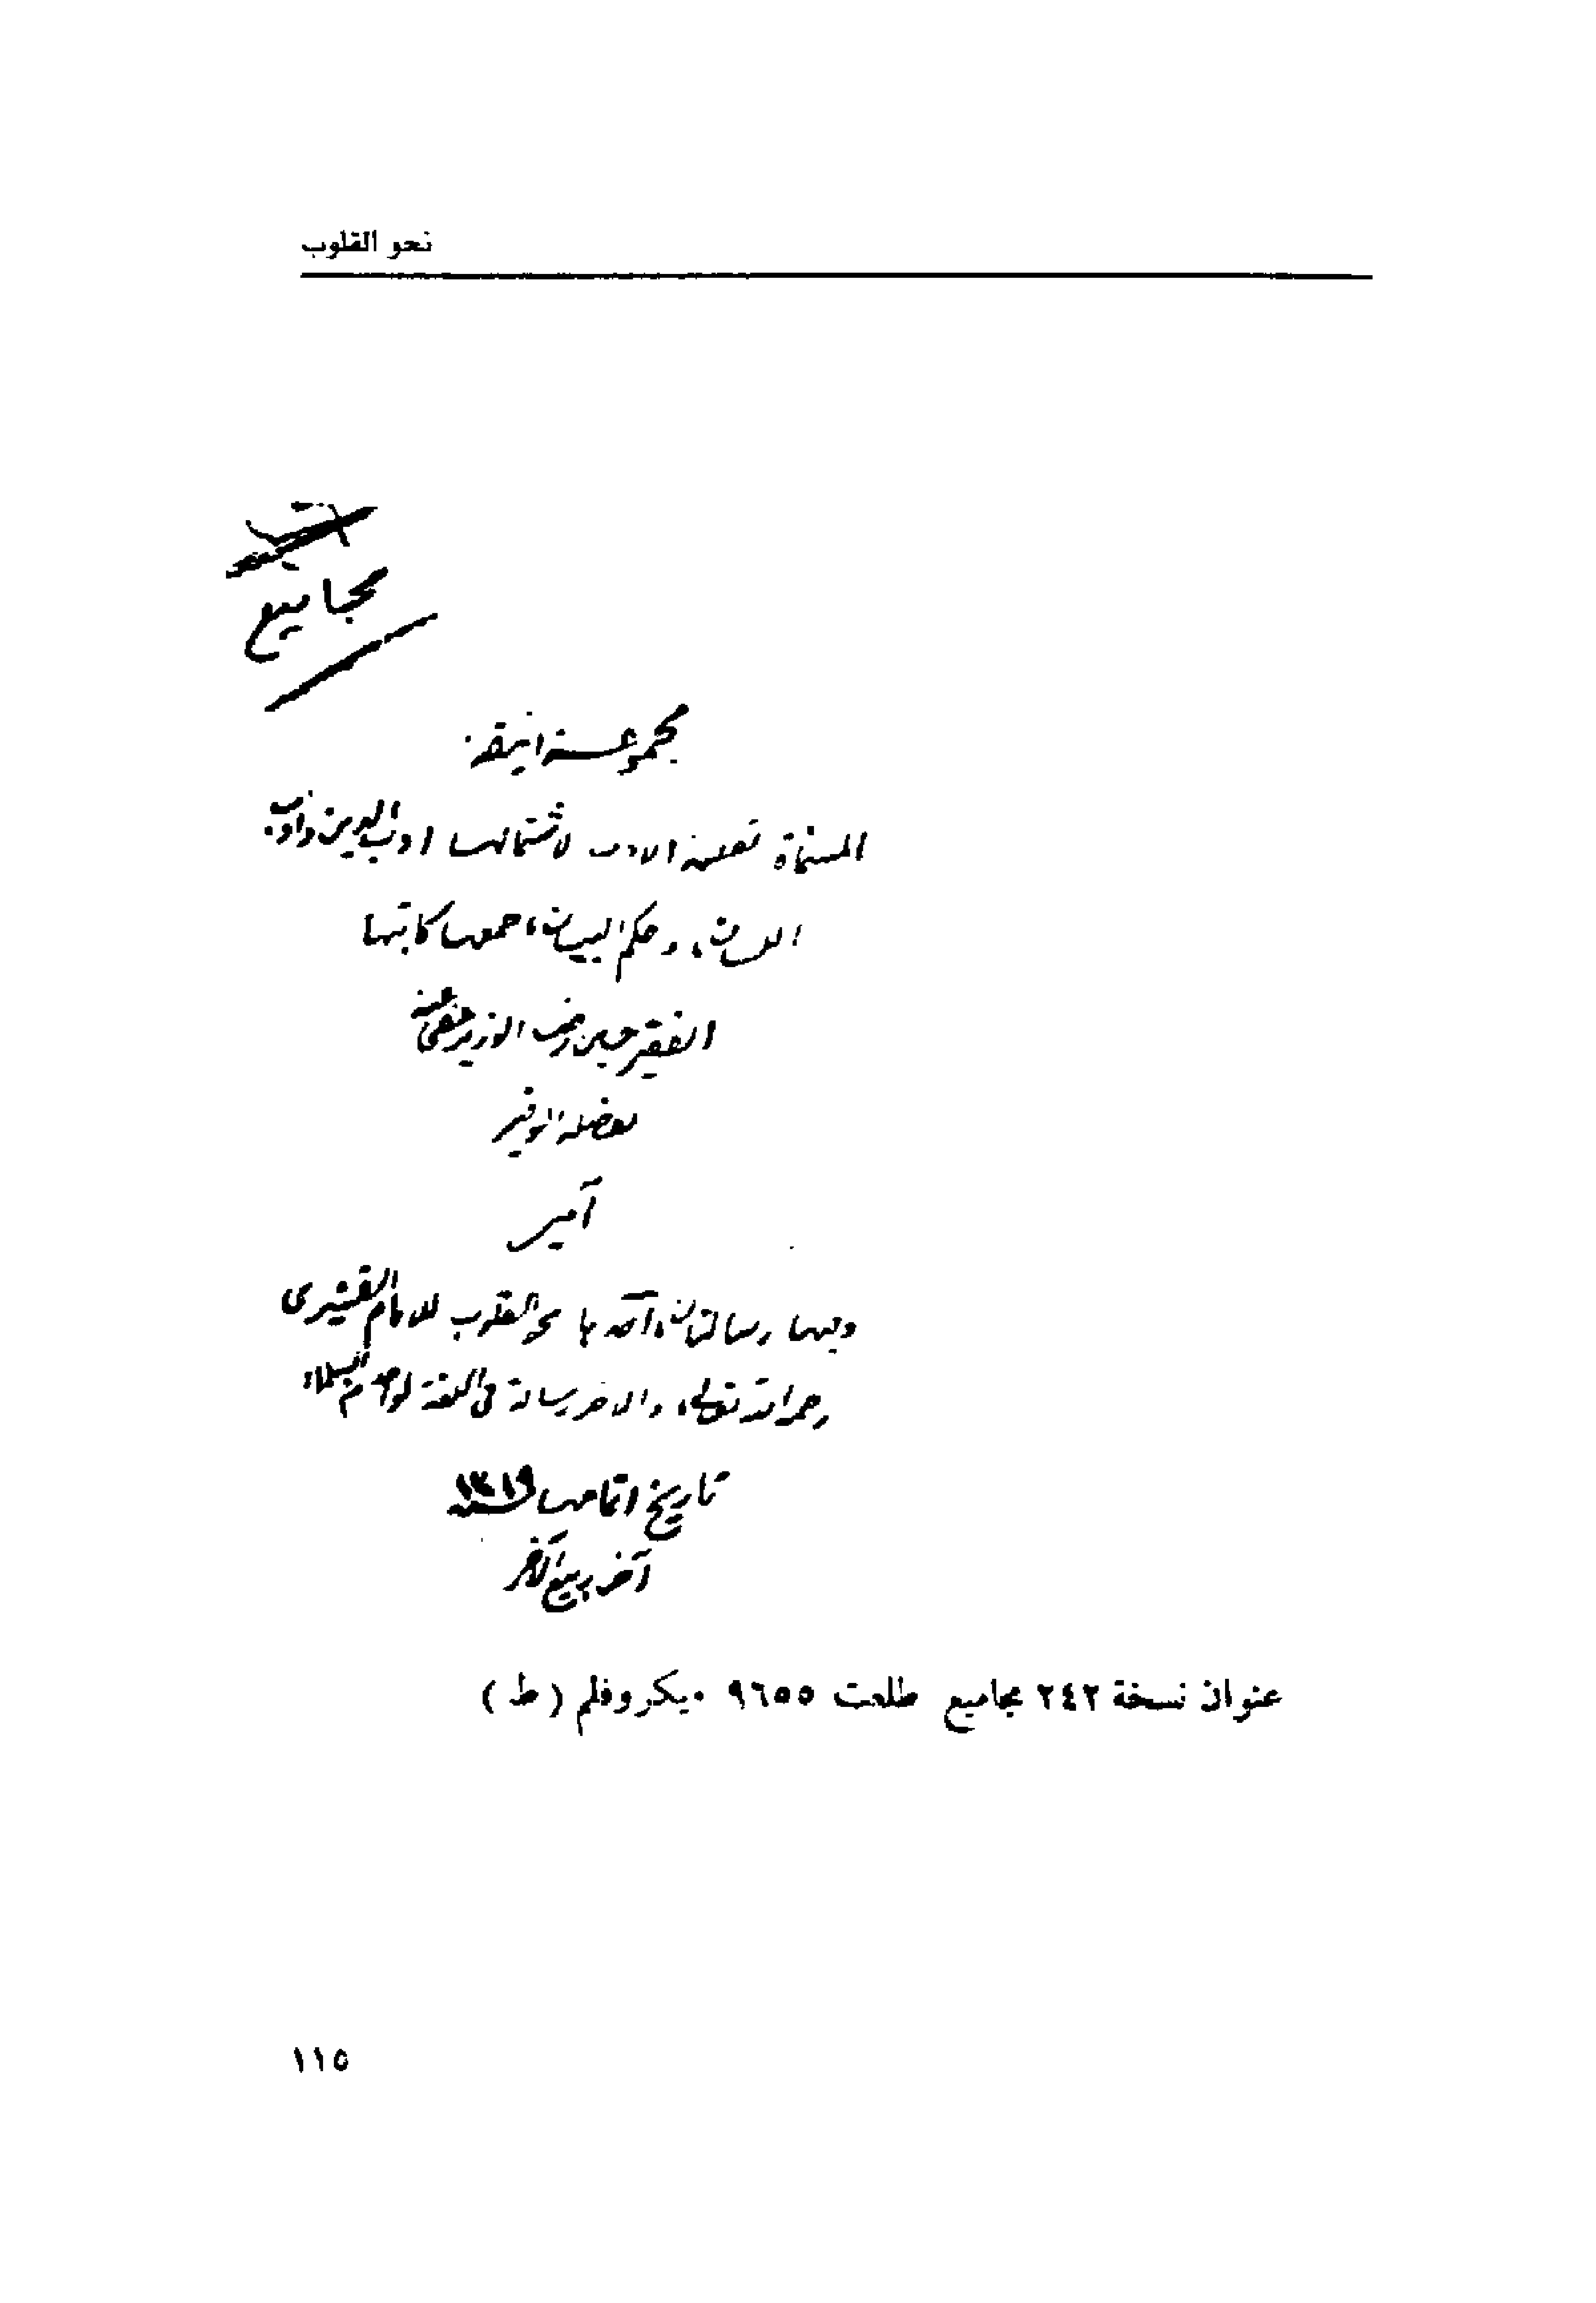 نحو القلوب
مجاميع
مجموعة انيقة
المسماة الادب لاشتمالها ادب الدين وادب
اللسان، وحكم البيان، جمعها كاتبها
الفقير حسين الوزير عفى عنه
بفضله الوفير
آمين
وفيها رسالتان، نحو القلوب للامام القشيرى
رحمه الله تعالى، والاخر رسالة فى اللغة لواحد من
تاريخ اتمامها سنة ١٣١٩
آخر ربيع الآخر
عنوان نسخة ٢٤٢ مجاميع طلعت ٩٦٥٥ ميكروفلم ( ط )
١١٥